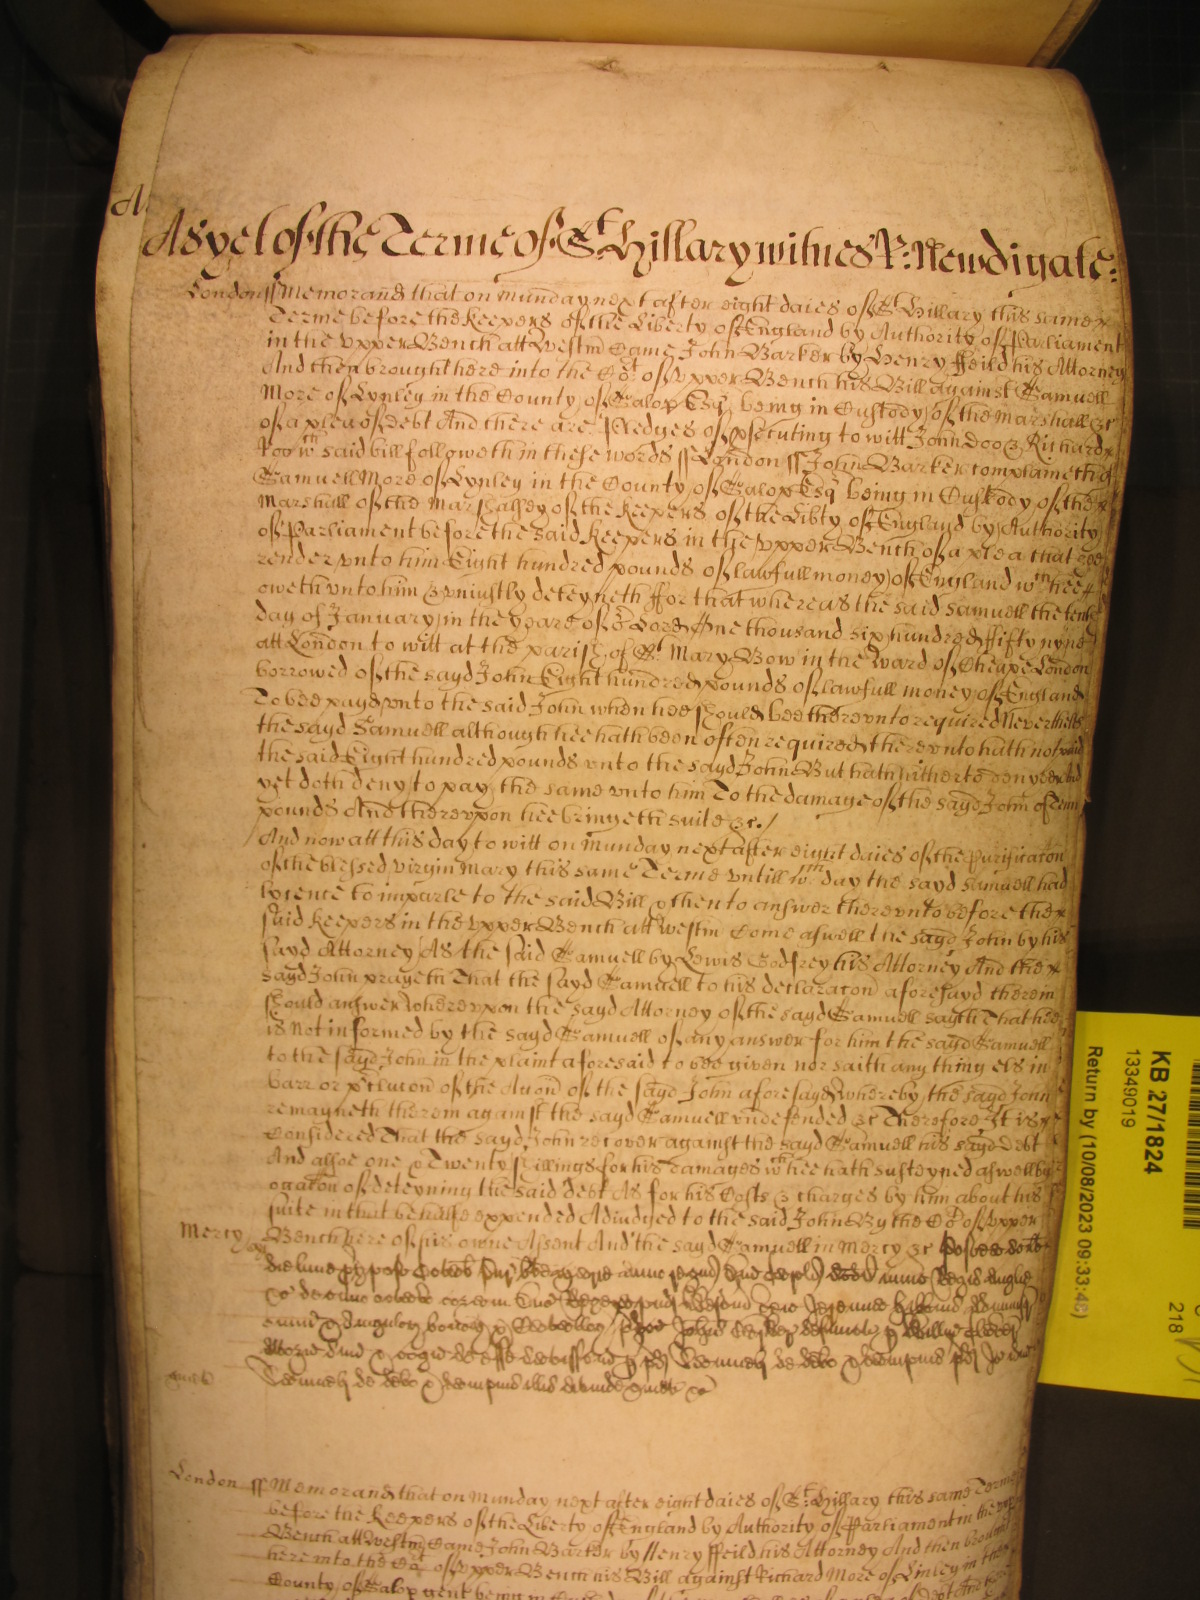 A
As yet of the Terme of St. Hillary witnes R: Newdigate:
London ss Memorand that on Munday next after eight daies of St Hillary this same
Terme before the Keepers of the Liberty of England by Authority of Parliament
in the vpper Bench att Westm Came John Barker by Henry ffeild his Attorney
And then brought here into the Cot of vpper Bench his Bill against Samuell
More of Lynley in the County of Salop Esq being in Custody of the Marshall &c
of a plea of Debt And there are Pledges of psecuting to witt John Doo & Richard
Roo wch said bill followeth in these words ss London ss John Barker complaineth of
Samuell More of Lynley in the County of Salop Esq being in Custody of the
Marshall of the Marshalsey of the Keepers of the Libty of England by Authority
of Parliament before the said Keepers in the vpper Bench of a plea that hee
render vnto him Eight hundred pounds of lawfull money of England wch hee
oweth vnto him & vniustly deteyneth ffor that whereas the said Samuell the tenth
day of January in the yeare of or Lord One thousand six hundred fifty nyne
att London to witt at the parish of St Mary Bow in the Ward of Cheape London
borrowed of the sayd John Eight hundred pounds of lawfull money of England
To bee payd vnto the said John when hee should bee therevnto required Neverthels
the sayd Samuell although hee hath been often required therevnto hath not paid
the said Eight hundred pounds vnto the sayd John But hath hitherto denyed and
yet doth deny to pay the same vnto him To the damage of the sayd John of Tenn
pounds And therevpon hee bringeth suite &c./
And now att this day to witt on Munday next after eight daies of the Purificaton
of the blessed virgin Mary this same Terme vntill wch day the sayd Samuell had
lycence to imparle to the said Bill & then to answer therevnto before the
said Keepers in the vpper Bench att Westm Come aswell the sayd John by his
sayd Attorney As the said Samuell by Lewis Godfrey his Attorney And the
sayd John prayeth That the sayd Samuell to his declaracon aforesayd therein
should answer Wherevpon the sayd Attorney of the sayd Samuell sayth That hee
is not informed by the sayd Samuell of any answer for him the sayd Samuell
to the sayd John in the plaint aforesaid to bee given nor saith any thing els in
barr or pclucon of the Accon of the sayd John aforesayd Whereby the sayd John
remayneth therein against the sayd Samuell vndefended &c Therefore It is
Considered That the sayd John recover against the sayd Samuell his sayd debt
And alsoe one & Twenty shillings for his damages wch hee hath susteyned aswell by
occason of deteyning the said debt As for his Costs & charges by him about his
suite in that behalfe expended Adiudged to the said John By the Cot of vpper
Mercy
Bench here of his owne Assent And the sayd Samuell in Mercy &c
London ss Memorand that on Munday next after eight daies of St Hillary this same Terme
before the Keepers of the Liberty of England by Authority of Parliament in the vpper
Bench att Westm Came John Barker by Henry ffeild his Attorney And then brought
here into the Cot of vpper Bench his Bill against Richard More of Linley in the
County of Salop gent being in
KB 27/1824
13349019
Return by (10/08/2023 09:33:48)
218